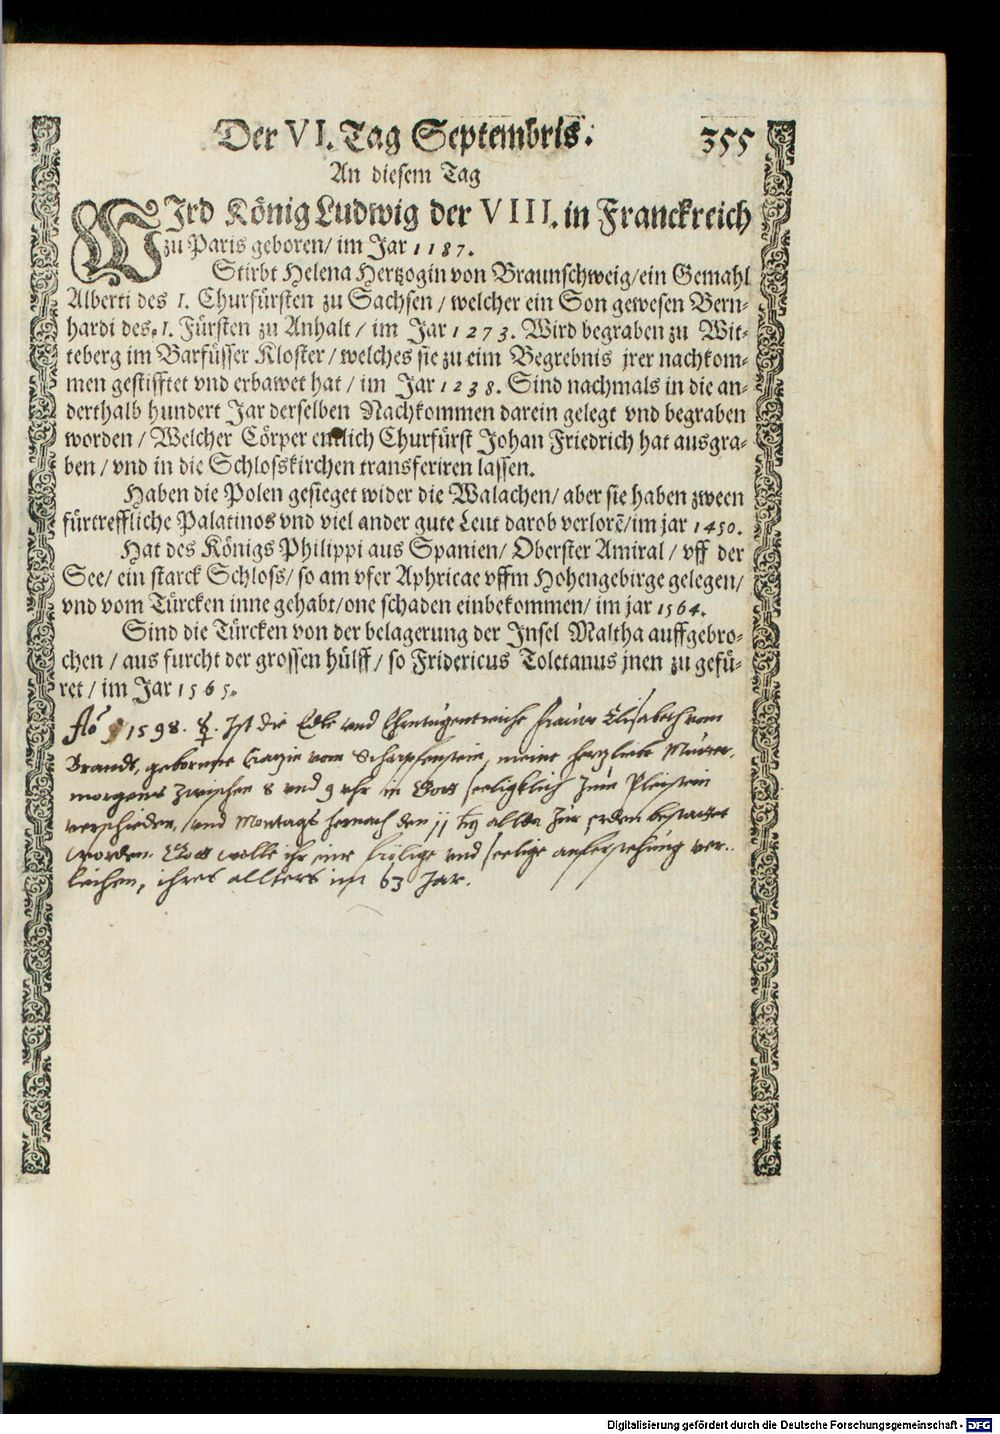 Der VI. Tag Septembris. 355
An diesem Tag
WIrd König Ludwig der VIII. in Franckreich
zu Paris geboren/ im Jar 1187.
Stirbt Helena Hertzogin von Braunschweig/ein Gemahl
Alberti des I. Churfürsten zu Sachsen / welcher ein Son gewesen Bern-
hardi des I. Fürsten zu Anhalt / im Jar 1273. Wird begraben zu Wit-
teberg im Barfüsser Kloster / welches sie zu eim Begrebnis jrer nachkom-
men gestifftet vnd erbawet hat / im Jar 1238. Sind nachmals in die an-
derthalb hundert Jar derselben Nachkommen darein gelegt vnd begraben
worden / Welcher Cörper entlich Churfürst Johan Friedrich hat ausgra-
ben / vnd in die Schlosskirchen transferiren lassen.
Haben die Polen gesieget wider die Walachen/ aber sie haben zween
fürtreffliche Palatinos vnd viel ander gute Leut darob verlorē/im jar 1450.
Hat des Königs Philippi aus Spanien/ Oberster Amiral / vff der
See/ ein starck Schloss/ so am vfer Aphricae vffm Hohengebirge gelegen/
vnd vom Türcken inne gehabt/one schaden einbekommen/ im jar 1564.
Sind die Türcken von der belagerung der Insel Maltha auffgebro-
chen / aus furcht der grossen hülff/ so Fridericus Toletanus jnen zu gefü-
ret / im Jar 1565.
Aō 1598. ☿. Ist die Edle vnd Ehrntugentreiche Frauw Elisabeth vom
Brandt, geborne vom Scharpfenstein, meine hertzliebe Mutter,
morgens zwischen 8 vnd 9 vhr in Gott seeligklich zum Pleistein
verschieden, vnd Montags hernach den 11 allda zur erden bestattet
worden. Gott wolle ihr eine fröliche vnd seelige aufferstehung ver-
leichen, ihres allters im 63 Jar.
Digitalisierung gefördert durch die Deutsche Forschungsgemeinschaft - DFG